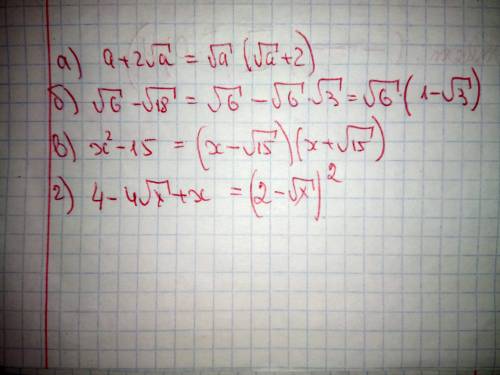 а) a+2√a = √a (√a+2)
б) √6 - √18 = √6 - √6·√3 = √6·(1-√3)
в) x²-15 = (x-√15)(x+√15)
г) 4-4√x+x = (2-√x)²